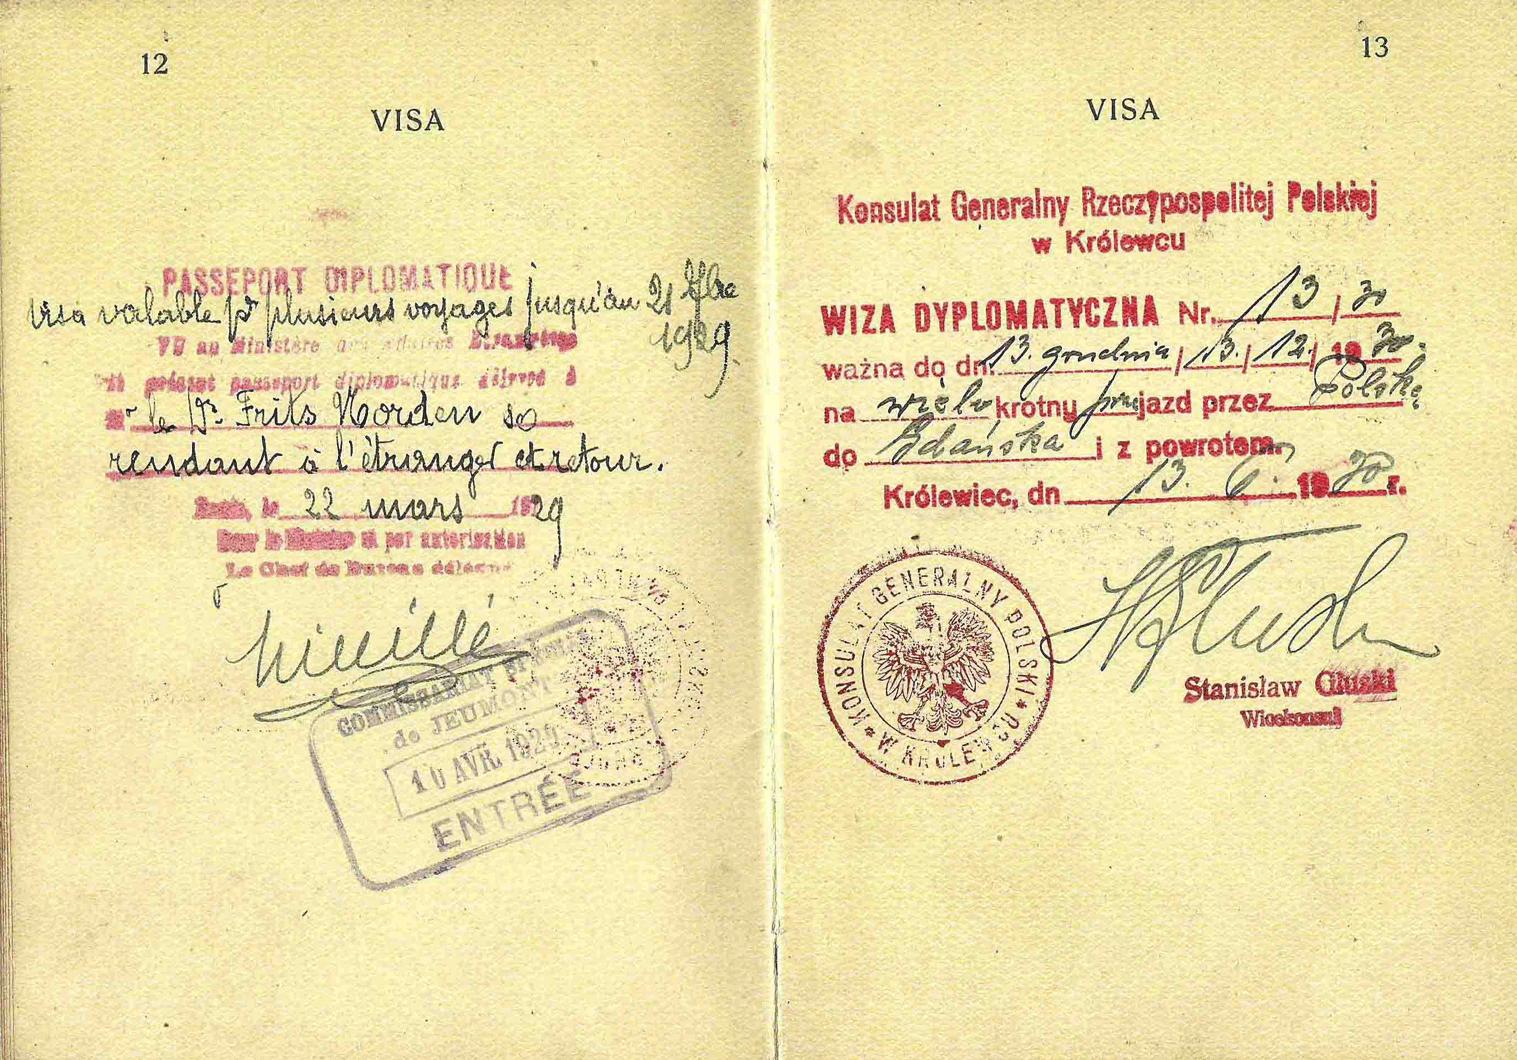 12
VISA
PASSEPORT DIPLOMATIQUE
Visa valable pr plusieurs voyages jusqu'au 21
1929
VU au Ministère des Affaires Etrangères
le présent passeport diplomatique délivré à
Mr le Dr. Frits Norden se
rendant à l'étranger et retour.
Paris, le 22 mars 1929
Pour le Ministre et par autorisation
Le Chef de Bureau délégué
COMMISSARIAT SPÉCIAL
de JEUMONT
10 AVR. 1929
ENTRÉE
13
VISA
Konsulat Generalny Rzeczypospolitej Polskiej
w Królewcu
WIZA DYPLOMATYCZNA Nr. 13/30
ważna do dn. 13. grudnia /13./12./1930.
na wielokrotny przejazd przez Polskę
do Gdańska i z powrotem.
Królewiec, dn 13. 6. 1930 r.
KONSULAT GENERALNY POLSKI
* W KRÓLEWCU *
Stanisław Głuski
Wicekonsul